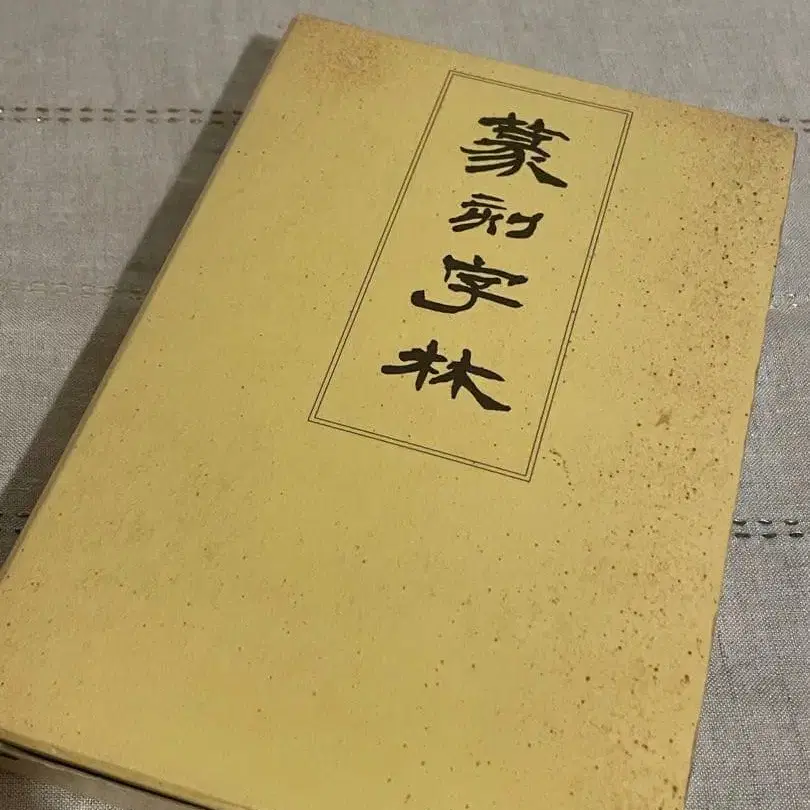 篆刻字林